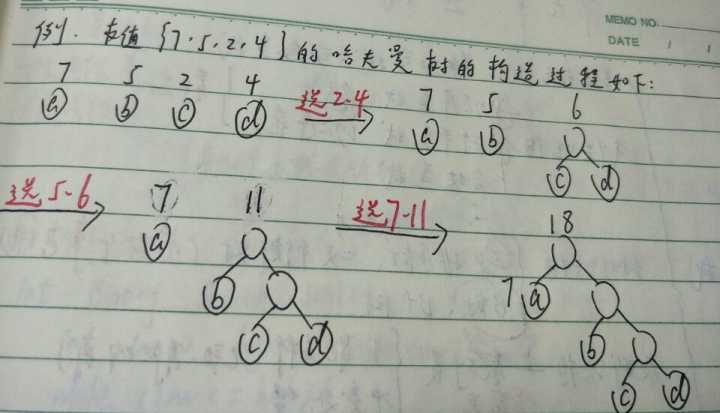 MEMO NO.
DATE / /
例. 权值{7.5.2.4}的哈夫曼树的构造过程如下:
7 5 2 4 选 2-4 7 5 6
a b c d a b
c d
选 5-6 7 11 选 7-11 18
a
b 7 a
c d b
c d